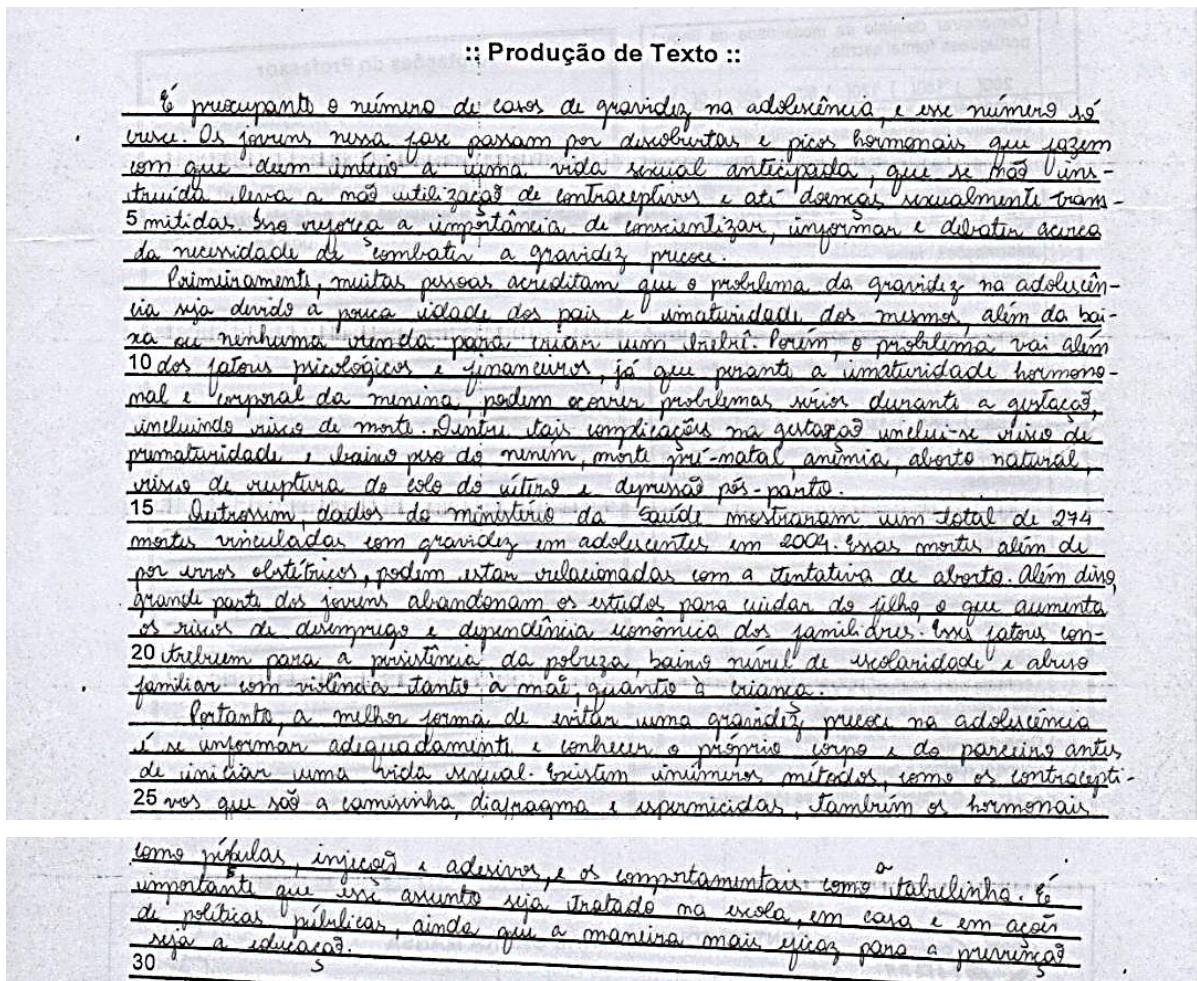 :: Produção de Texto ::
É preocupante o número de casos de gravidez na adolescência, e esse número só
cresce. Os jovens nessa fase passam por descobertas e picos hormonais que fazem
com que deem início a uma vida sexual antecipada, que se não ins-
truída leva a não utilização de contraceptivos e até doenças sexualmente trans-
5 mitidas. Isso reforça a importância de conscientizar, informar e debater acerca
da necessidade de combater a gravidez precoce.
Primeiramente, muitas pessoas acreditam que o problema da gravidez na adolescên-
cia seja devido a pouca idade dos pais e imaturidade dos mesmos, além da bai-
xa ou nenhuma renda para criar um bebê. Porém, o problema vai além
10 dos fatores psicológicos e financeiros, já que perante a imaturidade hormono-
nal e corporal da menina, podem ocorrer problemas sérios durante a gestação,
incluindo risco de morte. Dentre tais complicações na gestação inclui-se risco de
prematuridade e baixo peso do neném, morte pré-natal, anemia, aborto natural,
risco de ruptura do colo do útero e depressão pós-parto.
15 Outrossim, dados do ministério da saúde mostraram um total de 274
mortes vinculadas com gravidez em adolescentes em 2004. Essas mortes além de
por erros obstétricos, podem estar relacionadas com a tentativa de aborto. Além disso,
grande parte dos jovens abandonam os estudos para cuidar do filho, o que aumenta
os riscos de desemprego e dependência econômica dos familiares. Esses fatores con-
20 tribuem para a persistência da pobreza, baixo nível de escolaridade e abuso
familiar com violência tanto a mãe, quanto à criança.
Portanto, a melhor forma de evitar uma gravidez precoce na adolescência
é se informar adequadamente e conhecer o próprio corpo e do parceiro antes
de iniciar uma vida sexual. Existem inúmeros métodos, como os contracepti-
25 vos que são a camisinha, diafragma e espermicidas, também os hormonais
como pílulas, injeção e adesivos, e os comportamentais como a tabelinha. É
importante que esse assunto seja tratado na escola, em casa e em ações
de políticas públicas, ainda que a maneira mais eficaz para a prevenção
seja a educação.
30